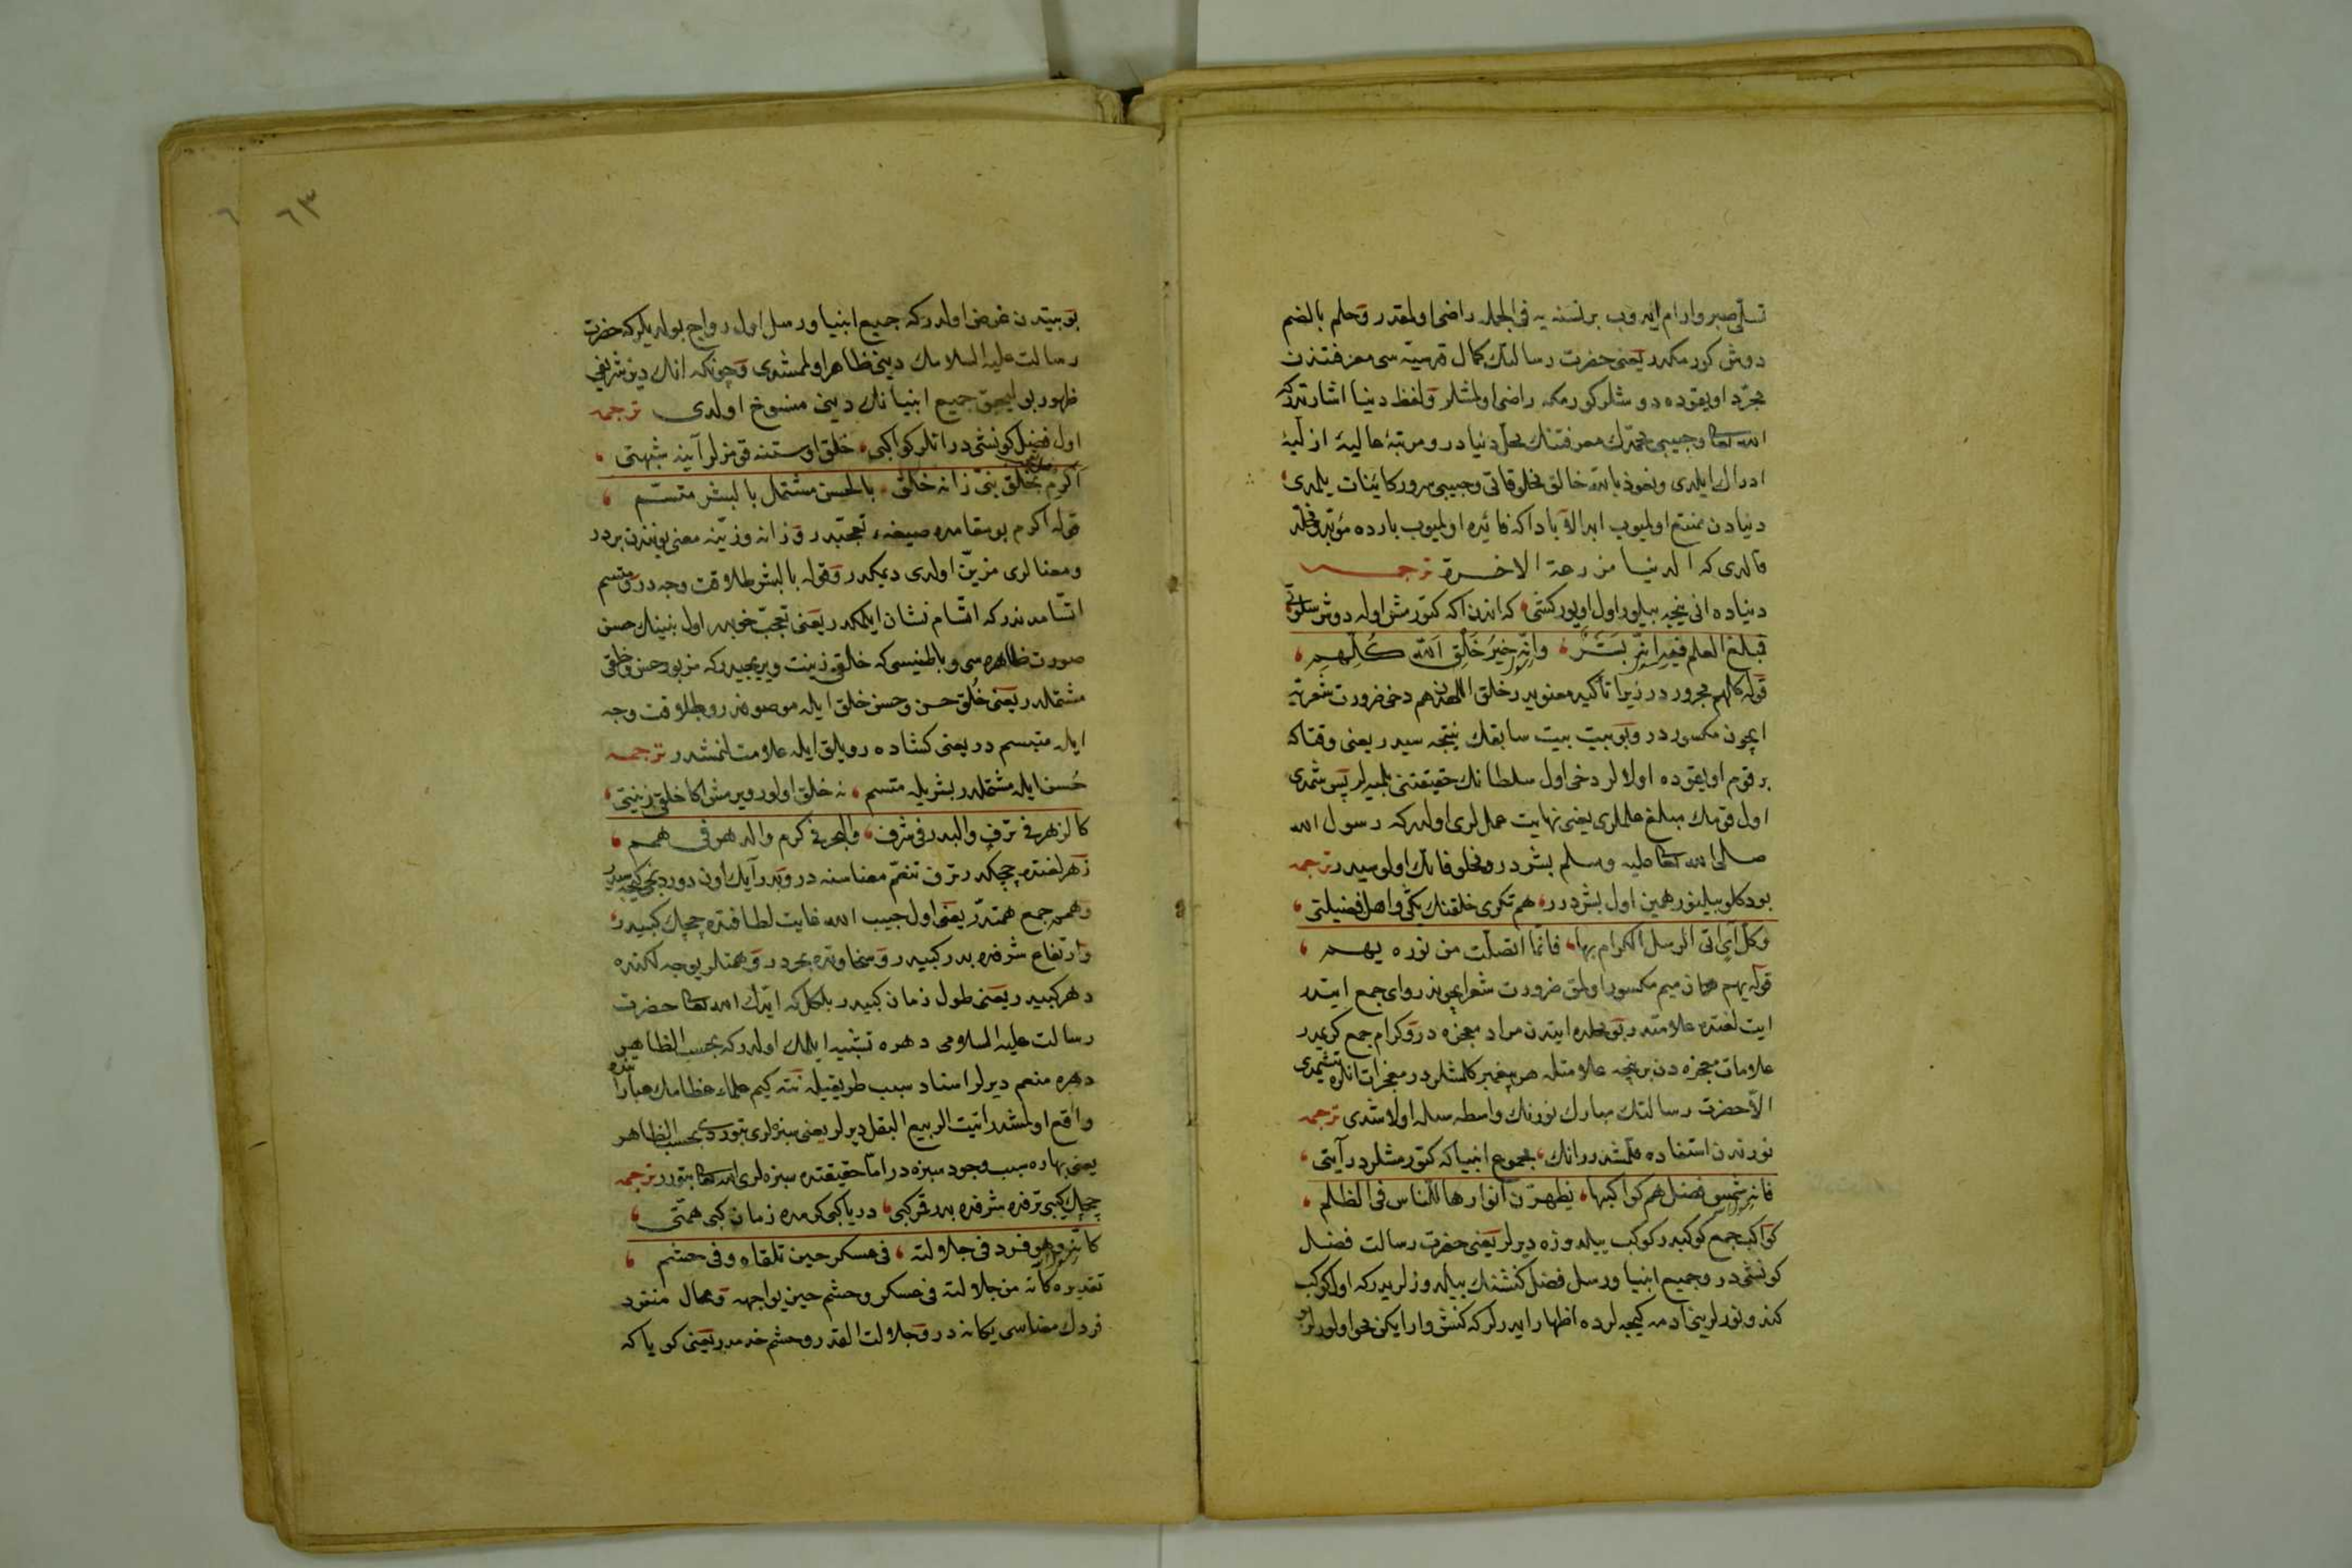 تسلّی صبر وارام ایدوب برنسنه یه فی الجمله راضی اولمقدر وحلم بالضم
دوش کورمکدر یعنی حضرت رسالتك کمال قدسیّه سی معرفتندن
مجرّد اویقوده دوشلر کورمکه راضی اولمشلر ولفظ دنیا اشارتدرکه
الله تعالی وحبیبی محمّدك معرفتنك محلّ دنیادر ومرتبۀ عالیۀ ازلیۀ
ادراك ایلدی ونعوذ بالله خالق مخلوقاتی وحبیبی سرور کاینات بلمدی
دنیادن متمتع اولمیوب ابدالآباداکه فائده اولمیوب نارده مؤبد ومخلّد
قالدی که الدنیا مزرعة الاخرة ترجمه
دنیاده انی نیجه بیلور اول اویور کشی که اندن اکه کتورمش اوله دوش سلوتی
فمبلغ العلم فیه انه بشر وانه خیر خلق الله کلهم
قوله کلهم مجروردر زیرا تأکید معنویدر خلق اللهدن هم دخی ضرورت شعریه
ایچون مکسوردر وبو بیت بیت سابقك نتیجه سیدر یعنی وقتاکه
بر قوم اویقوده اولالر دخی اول سلطانك حقیقتنی بلمیه لر پس شمدی
اول قومك مبلغ علملری یعنی نهایت عملری اولدرکه رسول الله
صلی الله تعالی علیه وسلم بشردر ومخلوقاتك اولوسیدر ترجمه
بودکلو بیلنور همین اول بشردر هم تکری خلقنك یکی واهل فضیلتی
وکل آی اتی الرسل الکرام بها فانما اتصلت من نوره بهم
قوله بهم همان میم مکسور اولمق ضرورت شعر ایچوندر وای جمع ایتدر
ایت لغتده علامتدر بو محلده ایتدن مراد معجزه در وکرام جمع کریمدر
علامات معجزه دن بر نیجه علامتله هر پیغمبر کلمشلردر معجزات انلره یتشمدی
الّا حضرت رسالتك مبارك نورنك واسطه سیله اولاشدی ترجمه
نورندن استفاده قلمشدر انك مجموع انبیا که کتورمشلردر آیتی
فانه شمس فضل هم کواکبها یظهرن انوارها للناس فی الظلم
کواکب جمع کوکبدر کوکب ییلدوزه دیرلر یعنی حضرت رسالت فضل
کونشی در وجمیع انبیا ورسل فضل کنشنك ییلدوزلریدرکه اول کوکب
کندو نورلرینی ادمه کیجه لرده اظهار ایدرلرکه کنش وار ایکن محو اولورلر
٦٣
٦
بو بیتدن غرض اولدرکه جمیع انبیا ورسل اول رواج بولدیلرکه حضرت
رسالت علیه السلامك دینی ظاهر اولمشدی وچونکه انك دین شریفی
ظهور بولیجق جمیع انبیانك دینی منسوخ اولدی ترجمه
اول فضیل کونشی در انلر کواکبی خلق اوستنه قومزلر آینه شبهتی
اکرم بخلق نبی زانه خلق بالحسن مشتمل بالبشر متسم
قوله اکرم بو مقامده صیغۀ تعجبدر وزانه وزیّنه معنی یوزندن بردر
ومعنالری مزیّن اولدی دیمکدر وقوله بالبشر طلاقت وجه در ومتسم
اتسامدندرکه اتسام نشان ایلمکدر یعنی تعجب خوبدر اول نبینك حسن
صورت ظاهره سی وباطنیسی که خالقی زینت ویریجیدرکه مزبور حسن وخلقی
مشتملدر یعنی خُلق حسن وحسن خلق ایله موصوفدر وطلاقت وجه
ایله متبسم در یعنی کشاده رویلق ایله علامتلنمشدر ترجمه
حُسن ایله مشتملدر بشر یله متسم نه خلق اولور ویرمش اکا خلقی زینتی
کالزهر فی ترف والبدر فی شرف والبحر فی کرم والدهر فی همم
زهر لغتده چچکدر ترف تنعّم معناسنه در وبدر آیك اون دوردنجی کیجه سیدر
وهمم جمع همتدر یعنی اول حبیب الله غایت لطافتده چچك کبیدر
وارتفاع شرفده بدر کبیدر وسخاوتده بحردر وهمتلر یوجه لکنده
دهر کبیدر یعنی طول زمان کبیدر بلکه ایتدك الله تعالی حضرت
رسالت علیه السلامی دهره تشبیه ایلمك اولدرکه بحسب الظاهر
دهره منعم دیرلر اسناد سبب طریقیله نته کیم علماء عظامك عباراتنده
واقع اولمشدر انبت الربیع البقل دیرلر یعنی سبزه لری بتوردی بحسب الظاهر
یعنی بهاره سبب وجود سبزه در امّا حقیقتده سبزه لری الله تعالی بتورر ترجمه
چچك کبی ترفده شرفده بدر قمر کبی دریا کبی کرمده زمان کبی همتی
کانه وهو فرد فی جلالته فی عسکر حین تلقاه وفی حشم
تقدیره کانه من جلالته فی عسکر وحشم حین یواجهه ومحال منفرد
فردك معناسی یکانه در وجلالت القدر وحشم خدمدر یعنی کویا که